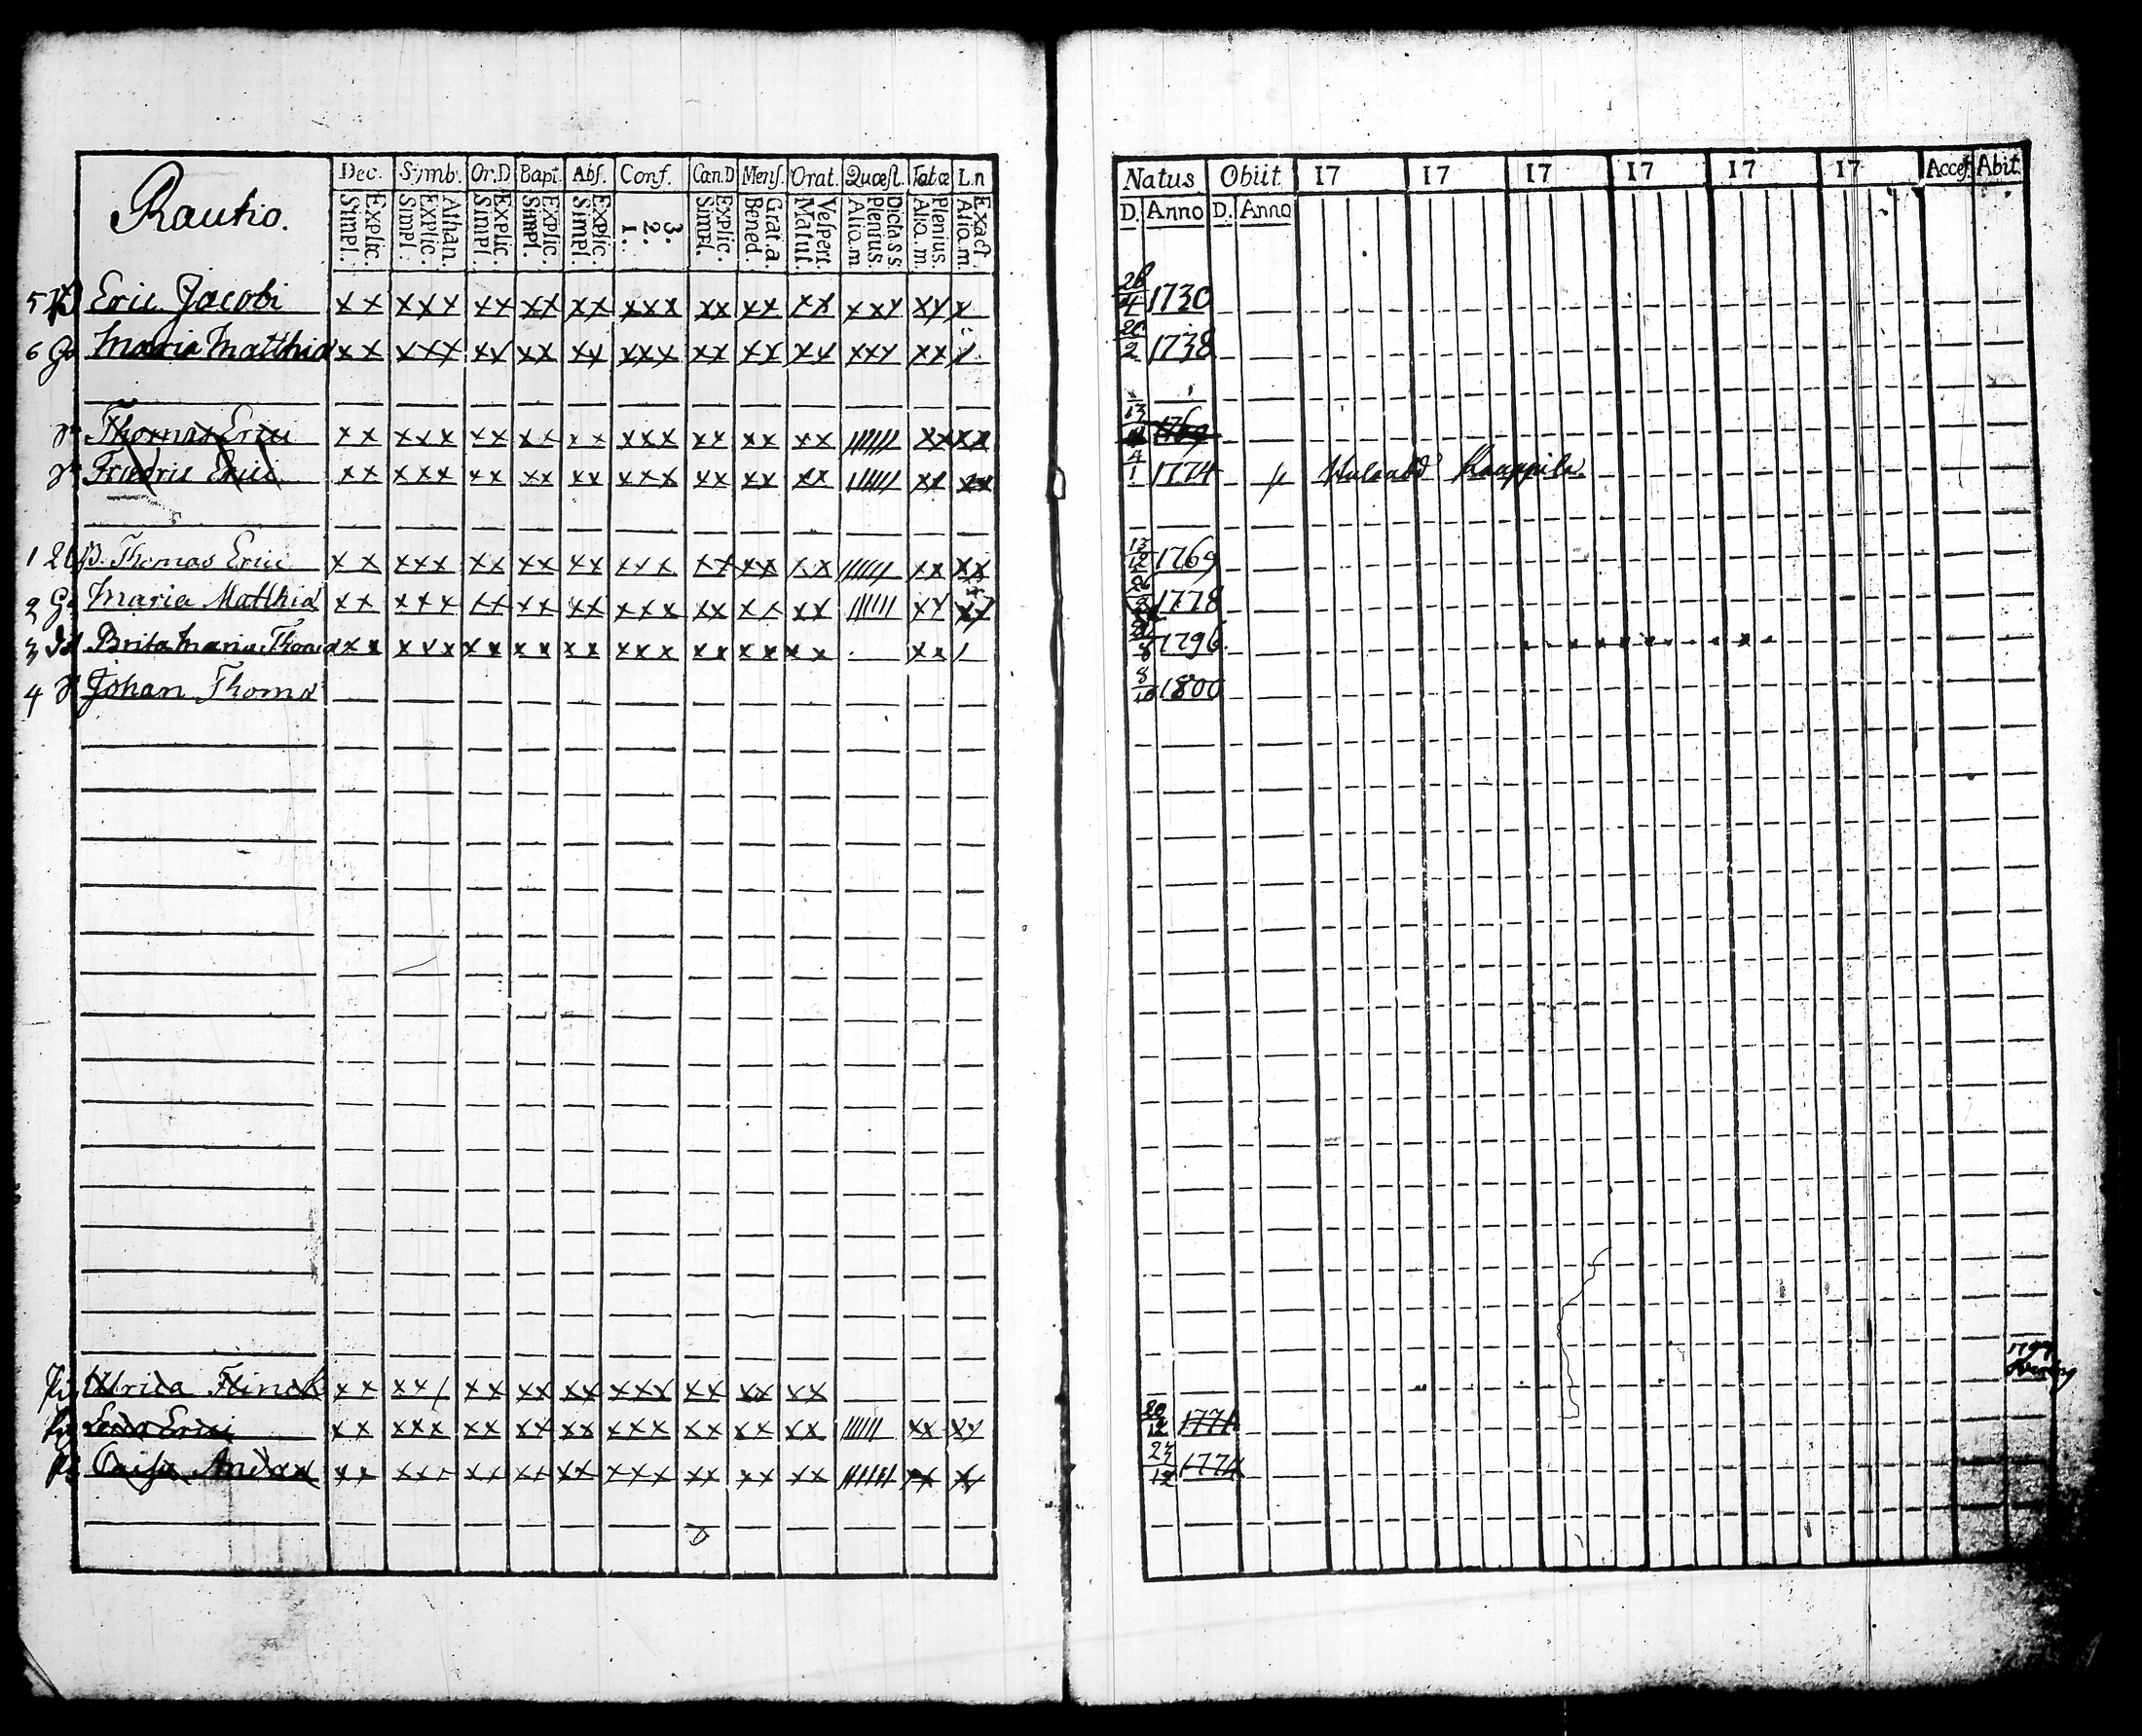 Rautio.
Dec. Simb. Or.D Bapt. Abs. Conf. Can.D Mens. Orat. Quæst. Totæ L.n
Explic. Simpl. Athan. Explic. Simpl. Explic. Simpl. Explic. Simpl. Explic. Simpl. 3. 2. 1. Explic. Simpl. Grat.a. Bened. Vespert. Matut. Dicta.s.s. Plenius. Aliq.m. Plenius. Aliq.m. Exact. Aliq.m.
Natus Obiit 17 17 17 17 17 17 Acceſ. Abit.
D. Anno D. Anno
5 Eric Jacobi x x x x x x x x x x x x x x x x x x x x x x x x x x x 1730
6 Maria Matthiæ x x x x x x x x x x x x x x x x x x x x x x x x x 2 1738
Thomas Erici x x x x x x x x x x x x x x x x x x x x //////  x x x x 13 1769
Friedric Erici x x x x x x x x x x x x x x x x x x x x ////// x x x x 4/1 1774 Kauppila
1 Thomas Erici x x x x x x x x x x x x x x x x x x x x ////// x x x x 13/12 1769
2 Maria Matthiæ x x x x x x x x x x x x x x x x x x x x ////// x x x x 1778
3 Brita Maria Thomæ x x x x x x x x x x x x x x x x x x x x x x / 8 1796
4 Johan Thomæ 8/10 1800
Ulrica Flinck x x x x / x x x x x x x x x x x x x x x 1797
Lena Erici x x x x x x x x x x x x x x x x x x x x ////// x x x x 20/12 1771
Caisa Andræ x x x x x x x x x x x x x x x x x x x x ////// x x x x 24/12 1774